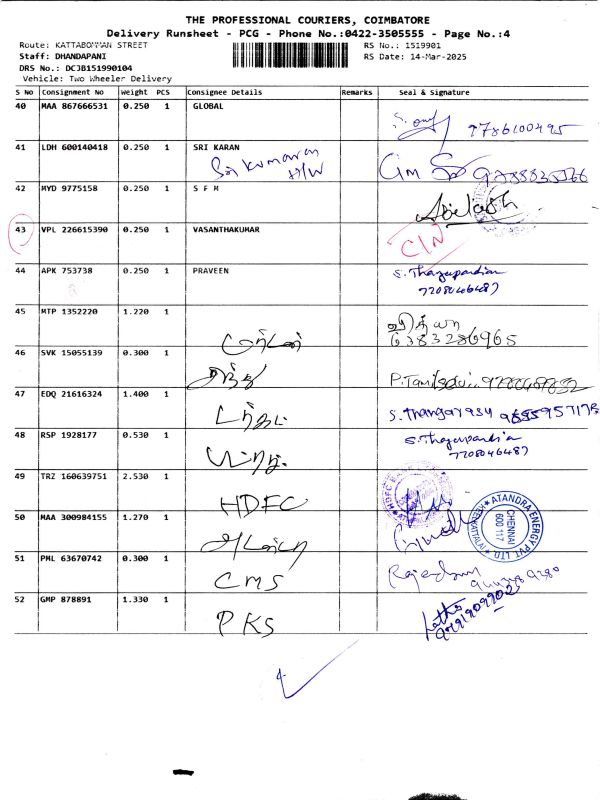 THE PROFESSIONAL COURIERS, COIMBATORE
Delivery Runsheet - PCG - Phone No.:0422-3505555 - Page No.:4
Route: KATTABOMMAN STREET RS No.: 1519901
Staff: DHANDAPANI RS Date: 14-Mar-2025
DRS No.: DCJB151990104
Vehicle: Two Wheeler Delivery
S No Consignment No Weight PCS Consignee Details Remarks Seal & Signature
40 MAA 867666531 0.250 1 GLOBAL
41 LDH 600140418 0.250 1 SRI KARAN
Sri Kumaran H/W
42 MYD 9775158 0.250 1 S F M
43 VPL 226615390 0.250 1 VASANTHAKUMAR
44 APK 753738 0.250 1 PRAVEEN S. Thagapandian
7208046487
45 MTP 1352220 1.220 1
6383286965
46 SVK 15055139 0.300 1
47 EDQ 21616324 1.400 1 S. Thangarasu
48 RSP 1928177 0.530 1 S. Thagapandian
7208046487
49 TRZ 160639751 2.530 1 HDFC
50 MAA 300984155 1.270 1 ATANDRA ENERGY PVT LTD
CHENNAI
600 117
51 PML 63670742 0.300 1 CMS
52 GMP 878891 1.330 1 PKS